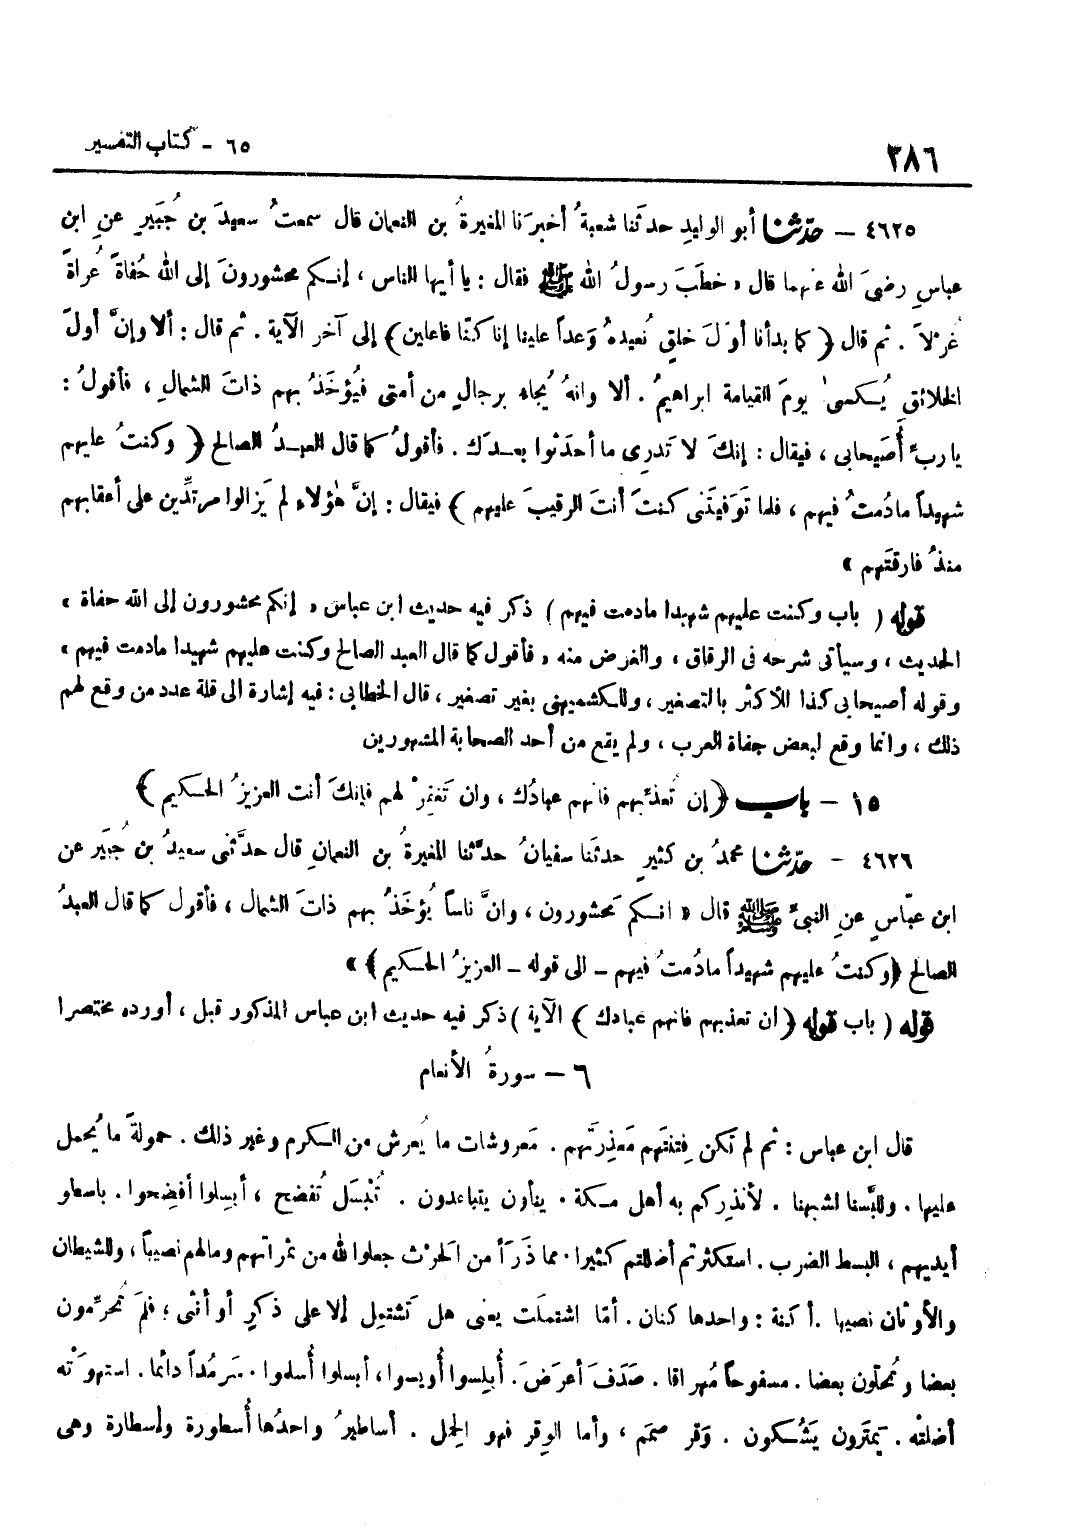 ٢٨٦ ٦٥ - كتاب التفسير
٤٦٢٥ - حدّثنا أبو الوليدِ حدثَنا شعبةُ أخبرَنا المغيرةُ بن النعمان قال سمعتُ سعيدَ بن جُبَيرٍ عنِ ابن
عباسٍ رضىَ الله عنهما قال « خطَبَ رسولُ الله ﷺ فقال : يا أيها الناس ، إنكم محشورونَ إلى الله حُفاةً عُراةً
غُرْلاً . ثم قال ﴿ كما بدأنا أوَلَ خلقٍ نُعيدهُ وَعداً علينا إنا كنّا فاعلين ﴾ إلى آخر الآية . ثم قال : ألا وإنَّ أولَ
الخلائقِ يُكسىٰ يومَ القيامة ابراهيمُ . ألا وانهُ يُجاء برجالٍ من أمتى فيُؤخَذُ بهم ذاتَ الشمالِ ، فأقولُ :
يارب أُصَيحابى ، فيقال : إنكَ لا تَدرِى ما أحدَثوا بعدَك . فأقولُ كما قال العبدُ الصالح ﴿ وكنتُ عليهم
شهيداً مادُمتُ فيهم ، فلما تَوَفيتَنى كنتَ أنتَ الرقيبَ عليهم ﴾ فيقال : إنَّ هٰؤلاءِ لم يَزالوا مرتدِّين على أعقابهم
منذُ فارقتَهم »
قوله ( باب وكنت عليهم شهيدا مادمت فيهم ) ذكر فيه حديث ابن عباس « إنكم محشورون إلى الله حفاة »
الحديث ، وسيأتى شرحه فى الرقاق ، والغرض منه « فأقول كما قال العبد الصالح وكنت عليهم شهيدا مادمت فيهم »
وقوله أصيحابى كذا للأكثر بالتصغير ، وللكشميهنى بغير تصغير ، قال الخطابى : فيه إشارة الى قلة عدد من وقع لهم
ذلك ، وانما وقع لبعض جفاة العرب ، ولم يقع من أحد الصحابة المشهورين
١٥ - باب ﴿ إن تُعذبهم فانهم عبادُك ، وان تَغفِرْ لهم فإنكَ أنت العزيزُ الحكيم ﴾
٤٦٢٦ - حدّثنا محمدُ بن كثيرٍ حدثَنا سفيانُ حدَّثنا المغيرةُ بن النعمانِ قال حدَّثنى سعيدُ بن جُبَير عن
ابن عبّاسٍ عنِ النبىِّ ﷺ قال « انكم مَحشورون ، وانَّ ناساً يُؤخَذُ بهم ذاتَ الشمال ، فأقول كما قال العبدُ
الصالح ﴿وكنتُ عليهم شهيداً مادُمتُ فيهم - الى قوله - العزيزُ الحكيم﴾ »
قوله ( باب قوله ﴿ ان تعذبهم فانهم عبادك ﴾ الآية ) ذكر فيه حديث ابن عباس المذكور قبل ، أورده مختصرا
٦ - سورةُ الأنعام
قال ابن عباس : ثم لم تكن فِتنَتَهم مَعذِرتَهم . مَعروشات ما يُعرش من الكرم وغير ذلك . حمولةً ما يُحمل
عليها . ولَلبَّسنا لشبهنا . لأنذِركم به أهل مكة . ينأون يتباعدون . تُبْسَل تُفضح ، أبسِلوا أفضِحوا . باسطو
أيديهم ، البسط الضرب . استكثرتم أضللتم كثيرا . مما ذَرَأ من الحَرْث جعلوا لله من ثمراتهم ومالهم نصيباً ، وللشيطان
والأوثان نصيبا . أكنة : واحدها كنان . أمّا اشتملَت يعنى هل تَشتمِل إلا على ذكرٍ أو أنثى ؛ فلمَ تُحرِّمون
بعضا وتُحلّون بعضا . مسفوحاً مُهراقا . صَدَفَ أعرَضَ . أُبلِسوا أُويسوا ، أبسلوا أُسلموا . سَرمَداً دائما . استهوَتْه
أضلتْه . يَمتَرون يَشُكون . وَقر صممَ ، وأما الوِقر فهو الحِمل . أساطيرُ واحدُها أُسطورة وإسطارة وهى